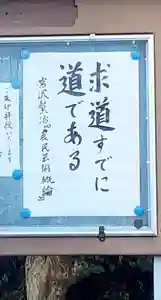 求道すでに
道である
宮沢賢治『農民芸術概論』